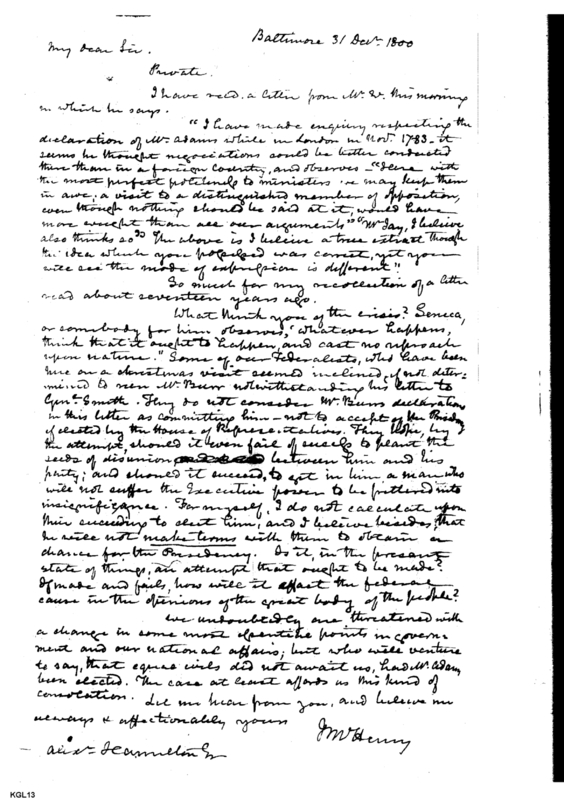 Baltimore 31 Decr. 1800
My dear Sir.
Private.
I have read a letter from Mr. W. this morning
in which he says.
"I have made enquiry respecting the
declaration of Mr. Adams while in London in Novr. 1783. it
seems he thought negociations could be better conducted
there than in a foreign Country, and observes "Here with
the most perfect politeness to ministers we may keep them
in awe; a visit to a distinguished member of opposition,
even though nothing should be said at it, would have
more weight than all our arguments" "Mr Jay, I believe
also thinks so" The above is I believe a true extract though
the idea which you possessed was correct, yet you
will see the mode of expression is different."
So much for my recollection of a letter
read about seventeen years ago.
What think you of the crisis? Seneca,
or somebody for him observes, "whatever happens,
think that it ought to happen, and cast no reproach
upon nature." Some of our Federalists, who have been
here on a christmas visit seemed inclined, if not deter-
mined to run Mr. Burr notwithstanding his letter to
Genl. Smith. They do not consider Mr Burrs declarations
in this letter as committing him - not to accept of the
if elected by the House of Representatives. They hope, by
the attempt, should it even fail of success to plant the
seeds of disunion between him and his
party; and should it succeed, to get in him a man who
will not suffer the Executive power to be frittered into
insignificance. For myself, I do not calculate upon
their succeeding to elect him, and I believe besides, that
he will not make terms with them to obtain a
chance for the Presidency. Is it, in the present
state of things, an attempt that ought to be made?
If made and fails, how will it affect the federal
cause in the opinions of the great body of the people?
We undoubtedly are threatened with
a change in some most essential points in govern-
ment and our national affairs; but who will venture
to say, that equal evils did not await us, had Mr. Adams
been elected. The case at least affords us this kind of
consolation. Let me hear from you, and believe me
always & affectionately yours
J McHenry
Alexr. Hamilton Esqr
KGL13